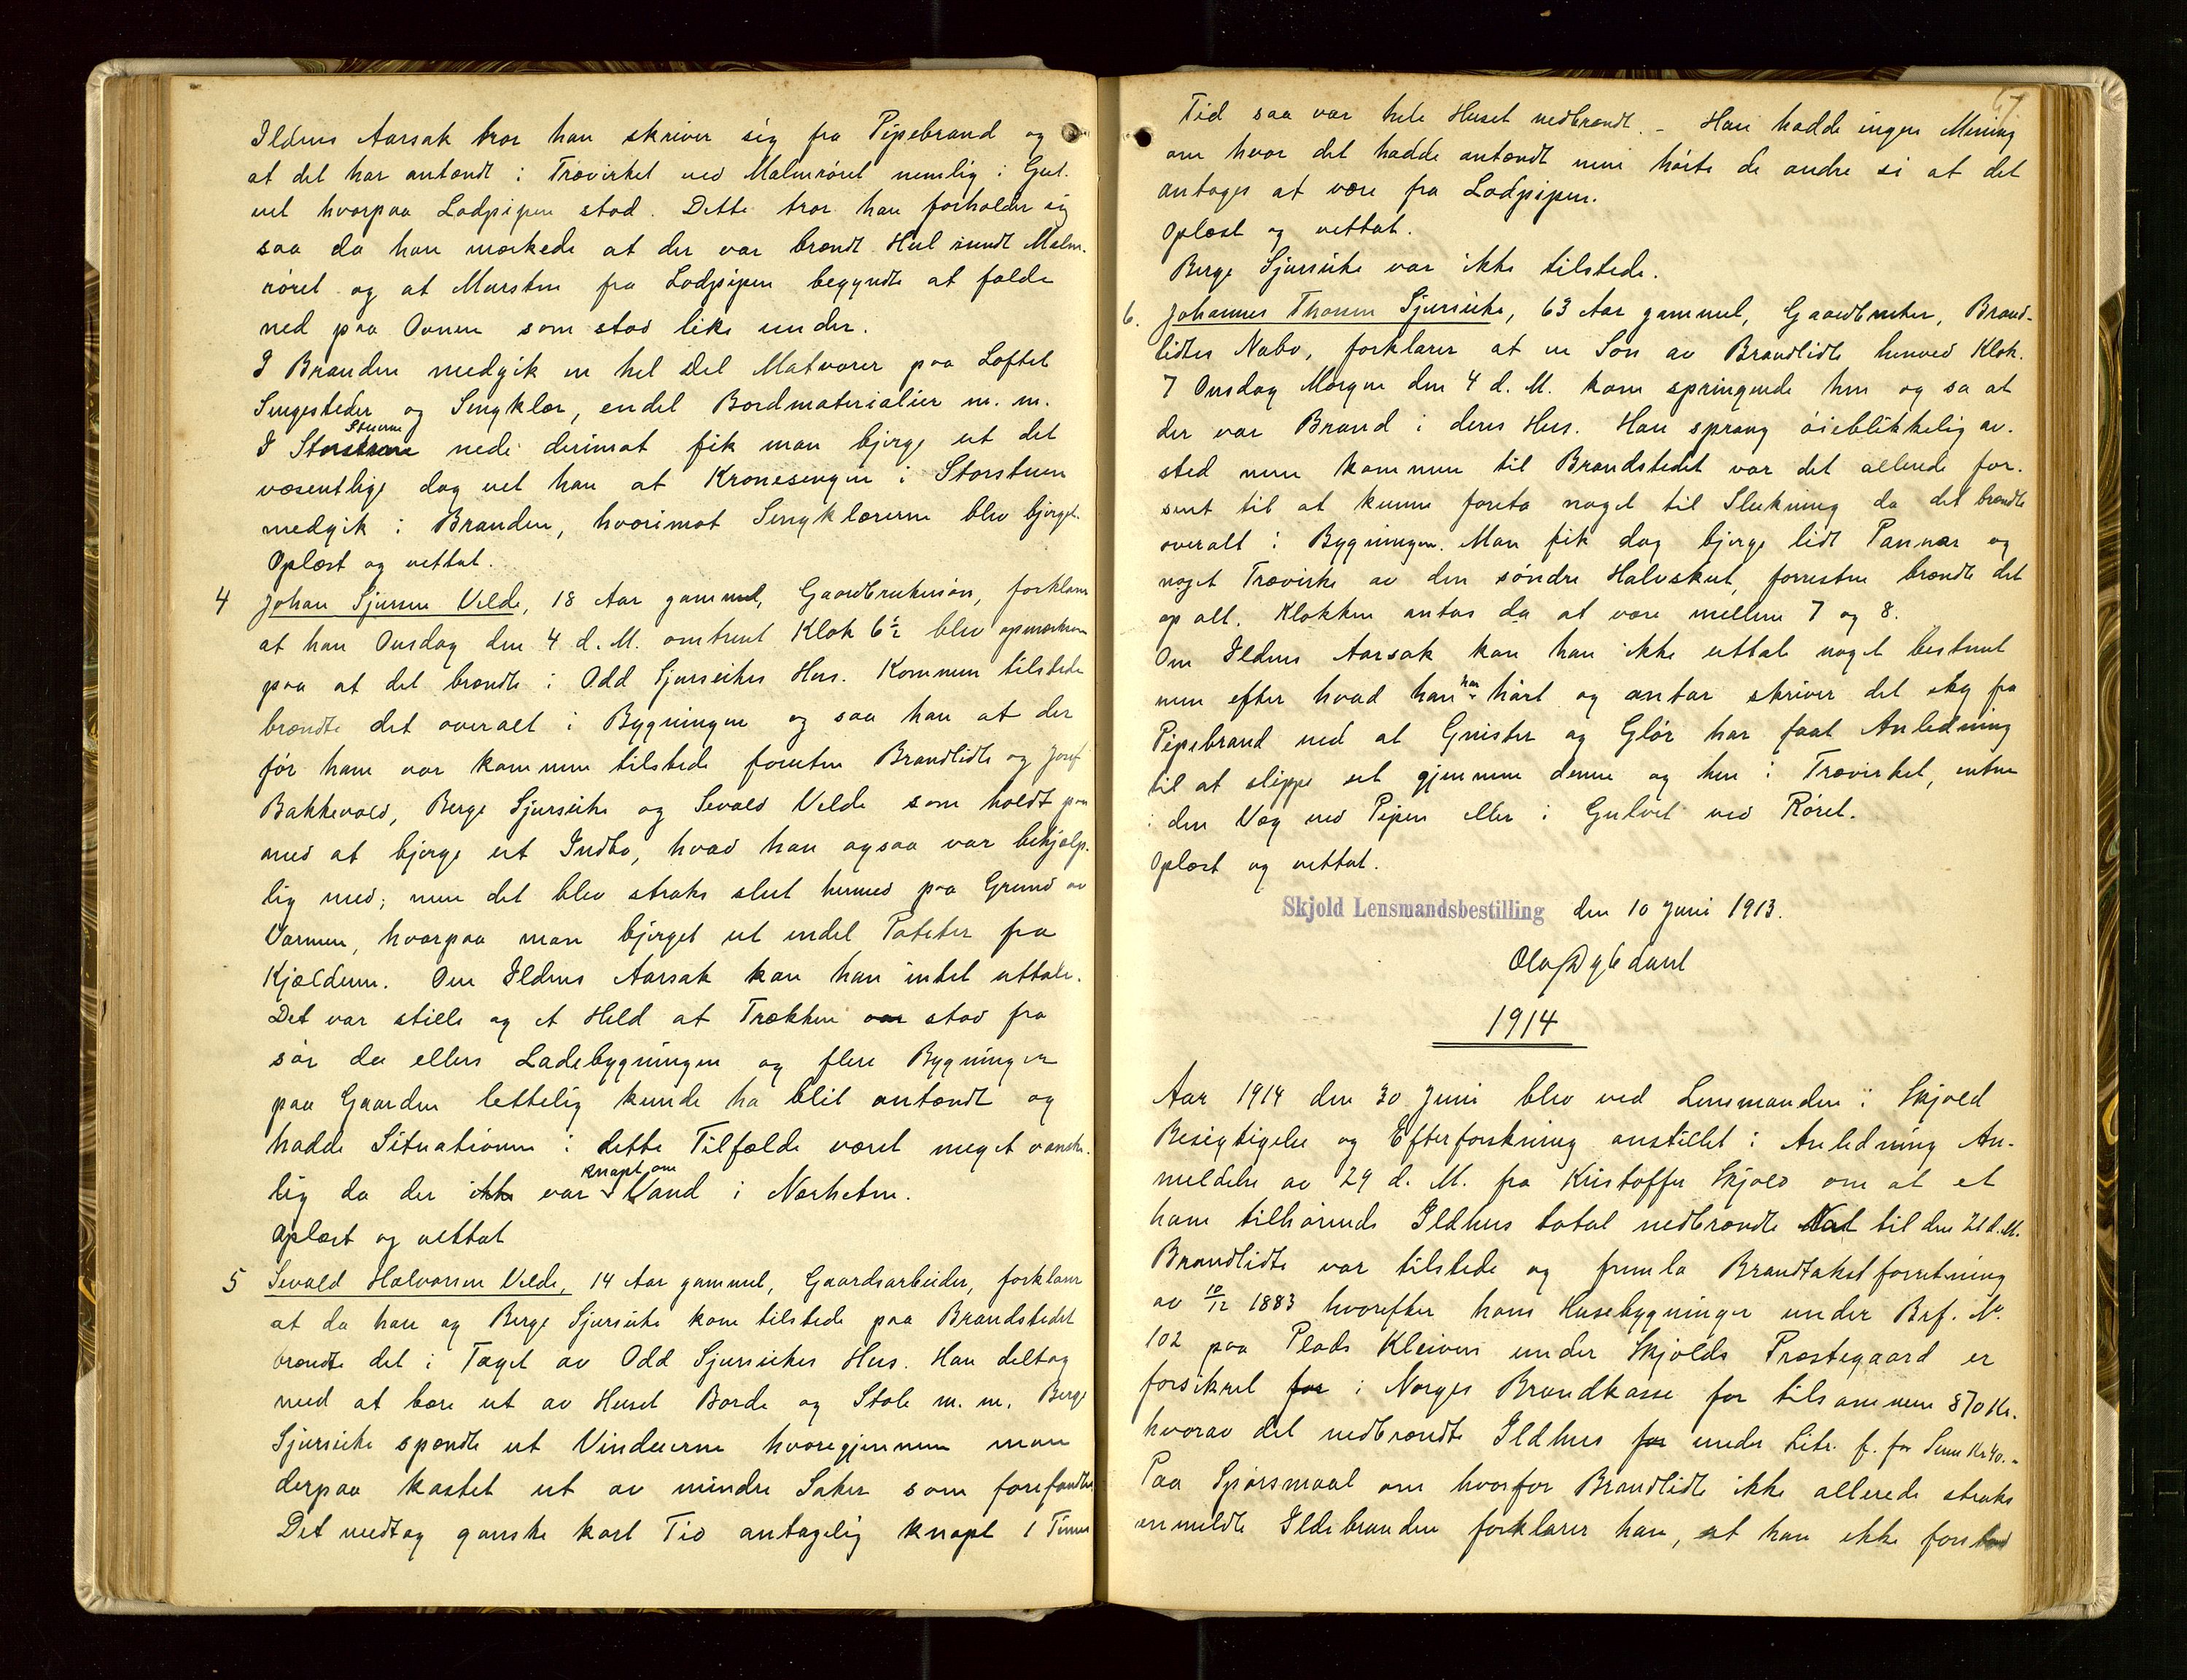 Ildens Aarsak tror han skriver sig fra Pipebrand og
at det har antændt i Træverket ved Malmrøret nemlig i Gul-
vet hvorpaa Lodpipen stod. Dette tror han forholder sig
saa da han mærkede at der var brændt Hul rundt Malm-
røret og at Mursten fra Lodpipen begyndte at falde
ned paa Ovnen som stod like under.
I Branden medgik en hel Del Matvarer paa Loftet
Sengesteder og Sengklær, endel Bordmaterialier m. m.
I Stuerne nede derimot fik man bjerge ut det
væsentlige dog vet han at Kronesengen i Storstuen
medgik i Branden, hvorimot Sengklærerne blev bjerget.
Oplæst og vettat.
4 Johan Sjursen Velde, 18 Aar gammel, Gaardbrukersøn, forklarer
at han Onsdag den 4 d. M. omtrent Klok 6½ blev opmerksom
paa at det brændte i Odd Sjurseikes Hus. Kommen tilstede
brændte det overalt i Bygningen og saa han at der
før ham var kommen tilstede foruten Brandlidte og Josef
Bakkevold, Berge Sjurseike og Sevald Velde som holdt paa
med at bjerge ut Indbo, hvad han ogsaa var behjælp-
lig med; men det blev straks slut hermed paa Grund av
Varmen, hvorpaa man bjerget ut endel Poteter fra
Kjælderen. Om Ildens Aarsak kan han intet uttale.
Det var stille og et Held at Trækken stod fra
sør da ellers Ladebygningen og flere Bygninger
paa Gaarden lettelig kunde ha blit antændt og
hadde Situationen i dette Tilfælde været meget vanske-
lig da der ikke var knapt om Vand i Nærheten.
Oplæst og vettat
5 Sevald Halvorsen Velde, 14 Aar gammel, Gaardsarbeider, forklarer
at da han og Berge Sjurseike kom tilstede paa Brandstedet
brændte det i Taget av Odd Sjurseikes Hus. Han deltog
med at bære ut av Huset Borde og Stole m. m. Berge
Sjurseike spændte ut Vinduerne hvorigjennem man
derpaa kastet ut av mindre Saker som forefandtes
Det medtog ganske kort Tid antagelig knapt 1 Times
67
Tid saa var hele Huset nedbrændt. - Han hadde ingen Mening
om hvor det hadde antændt men hørte de andre si at det
antages at være fra Lodpipen.
Oplæst og vettat.
Berge Sjurseike var ikke tilstede.
6. Johannes Thorsen Sjurseike, 63 Aar gammel, Gaardbruker, Brand-
lidtes Nabo, forklarer at en Søn av Brandlidte henved Klok.
7 Onsdag Morgen den 4 d. M. kom springende hen og sa at
der var Brand i deres Hus. Han sprang øieblikkelig av-
sted men kommen til Brandstedet var det allerede for-
sent til at kunne foreta noget til Slukning da det brændte
overalt i Bygningen. Man fik dog bjerge lidt Panner og
noget Træverke av den søndre Halvskut, forresten brændte det
op alt. Klokken antas da at være mellem 7 og 8.
Om Ildens Aarsak kan han ikke uttale noget bestemt
men efter hvad han har hørt og antar skriver det sig fra
Pipebrand ved at Gnister og Glør har faat Anledning
til at slippe ut gjennem denne og hen i Træverket, enten
i den Væg ved Pipen eller i Gulvet ved Røret.
Oplæst og vettat.
Skjold Lensmandsbestilling den 10 Juni 1913.
Olaf Dybdahl
1914
Aar 1914 den 30 Juni blev ved Lensmanden i Skjold
Besigtigelse og Efterforskning anstillet i Anledning An-
meldelse av 29 d. M. fra Kristoffer Skjold om at et
ham tilhørende Ildhus total nedbrændte Nat til den 21 d. M.
Brandlidte var tilstede og fremla Brandtakstforretning
av 10/12 1883 hvorefter hans Husebygninger under Brf. No.
102 paa Plads Kleiven under Skjolds Præstegaard er
forsikret for i Norges Brandkasse for tilsammen 870 Kr.
hvorav det nedbrændte Ildhus for under Litr. f. for Sum Kr 40.-
Paa Spørsmaal om hvorfor Brandlidte ikke allerede straks
anmeldte Ildebranden forklarer han, at han ikke forstod